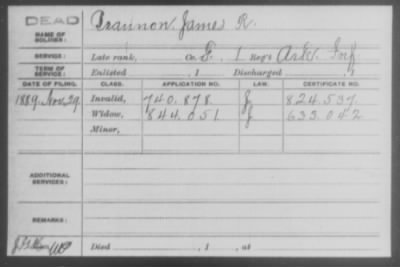 DEAD
NAME OF SOLDIER: James R.
SERVICE: Late rank, Co. F. 1 Reg't Ark. Inf.
TERM OF SERVICE: Enlisted , 1 Discharged , 1
DATE OF FILING. CLASS. APPLICATION NO. LAW. CERTIFICATE NO.
1889, Nov. 29 Invalid, 740.878. J 824.537.
Widow, 844.051 J 633.042
Minor,
ADDITIONAL SERVICES:
REMARKS:
Died , 1 , at